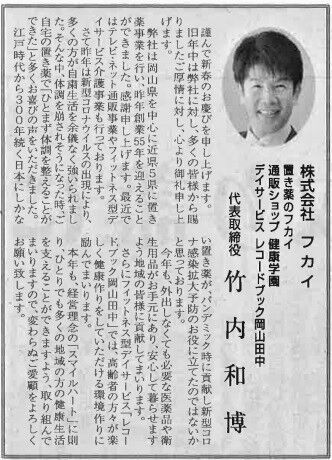 株式会社 フカイ
置き薬のフカイ
通販ショップ 健康学園
デイサービス レコードブック岡山田中
代表取締役 竹内和博
謹んで新春のお慶びを申し上げます。
旧年中は弊社に対し、多くの皆様から賜
りましたご厚情に対し、心より御礼申し上
げます。
弊社は岡山県を中心に近県5県に置き
薬事業を行い、昨年創業55年を迎えること
ができました。感謝申し上げます。最近で
はテレビ・ネット通販事業やフィットネス型デ
イサービス介護事業も行っております。
さて昨年は新型コロナウイルスの出現により、
多くの方が自粛生活を余儀なく強いられまし
た。そんな中、体調を崩されそうになった時、ご
自宅の置き薬で「ひとまず体調を整えることが
できた」と多くお喜びの声をいただきました。
江戸時代から300年続く、日本にしかな
い置き薬が、パンデミック時に貢献し新型コロ
ナ感染拡大予防のお役に立てたのではないか
と思っております。
今年も、外出しなくても必要な医薬品や衛
生用品がお手元にあり、安心して暮らせます
よう、地域の皆様に貢献してまいります。
さらにフィットネス型デイサービス「レコー
ドブック岡山田中」では、高齢者の方々が楽
しく健康作りをしていただける環境作りに
励んでまいります。
本年も、経営理念の「スマイルハート」に則
り、ひとりでも多くの地域の方の健康生活
を支えることができますよう、取り組んで
まいりますので、変わらぬご愛顧をよろしく
お願い致します。